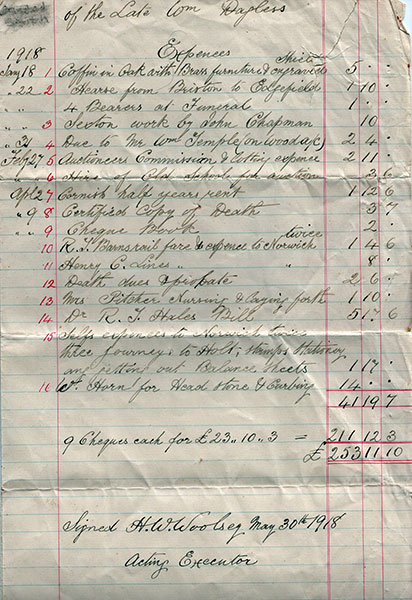 of the Late Wm Hagless
1918 Expences
Jany 18 1 Coffin in Oak with Brass furniture & engraved 5 " "
" 22 2 Hearse from Briston to Edgefield 1 10 "
" 4 Bearers at Funeral 1 " "
" 3 Sexton work by John Chapman 10
" 31 4 Due to Mr Wm Temple (on wood a/c) 2 4 "
Feby 27 5 Auctioneers Commission & Cotting expence 2 11 "
" 6 Hire of Old Schools for auction 3 6
Apl 27 7 Cornish half years rent 1 12 6
" 9 8 Certified Copy of Death 3 7
" 9 9 Cheque Book 2 "
twice
10 R. J. Barns rail fare & expence to Norwich 1 4 6
11 Henry C. Lines " " 8 "
12 Death dues & probate 2 6 "
13 Mrs Pitcher Nursing & Laying forth 1 10 "
14 Dr R. J. Hales Bill 5 17 6
15 Selfs expences to Norwich twice
three journeys to Holt, stamps Stationery
and getting out Balance sheets 1 17 "
16 W. Horn for Head stone & Curbing 14 " "
41 19 7
9 Cheques each for £23 " 10 " 3 = 211 12 3
£ 253 11 10
Signed H. W. Woolsey May 30th 1918
Acting Executor